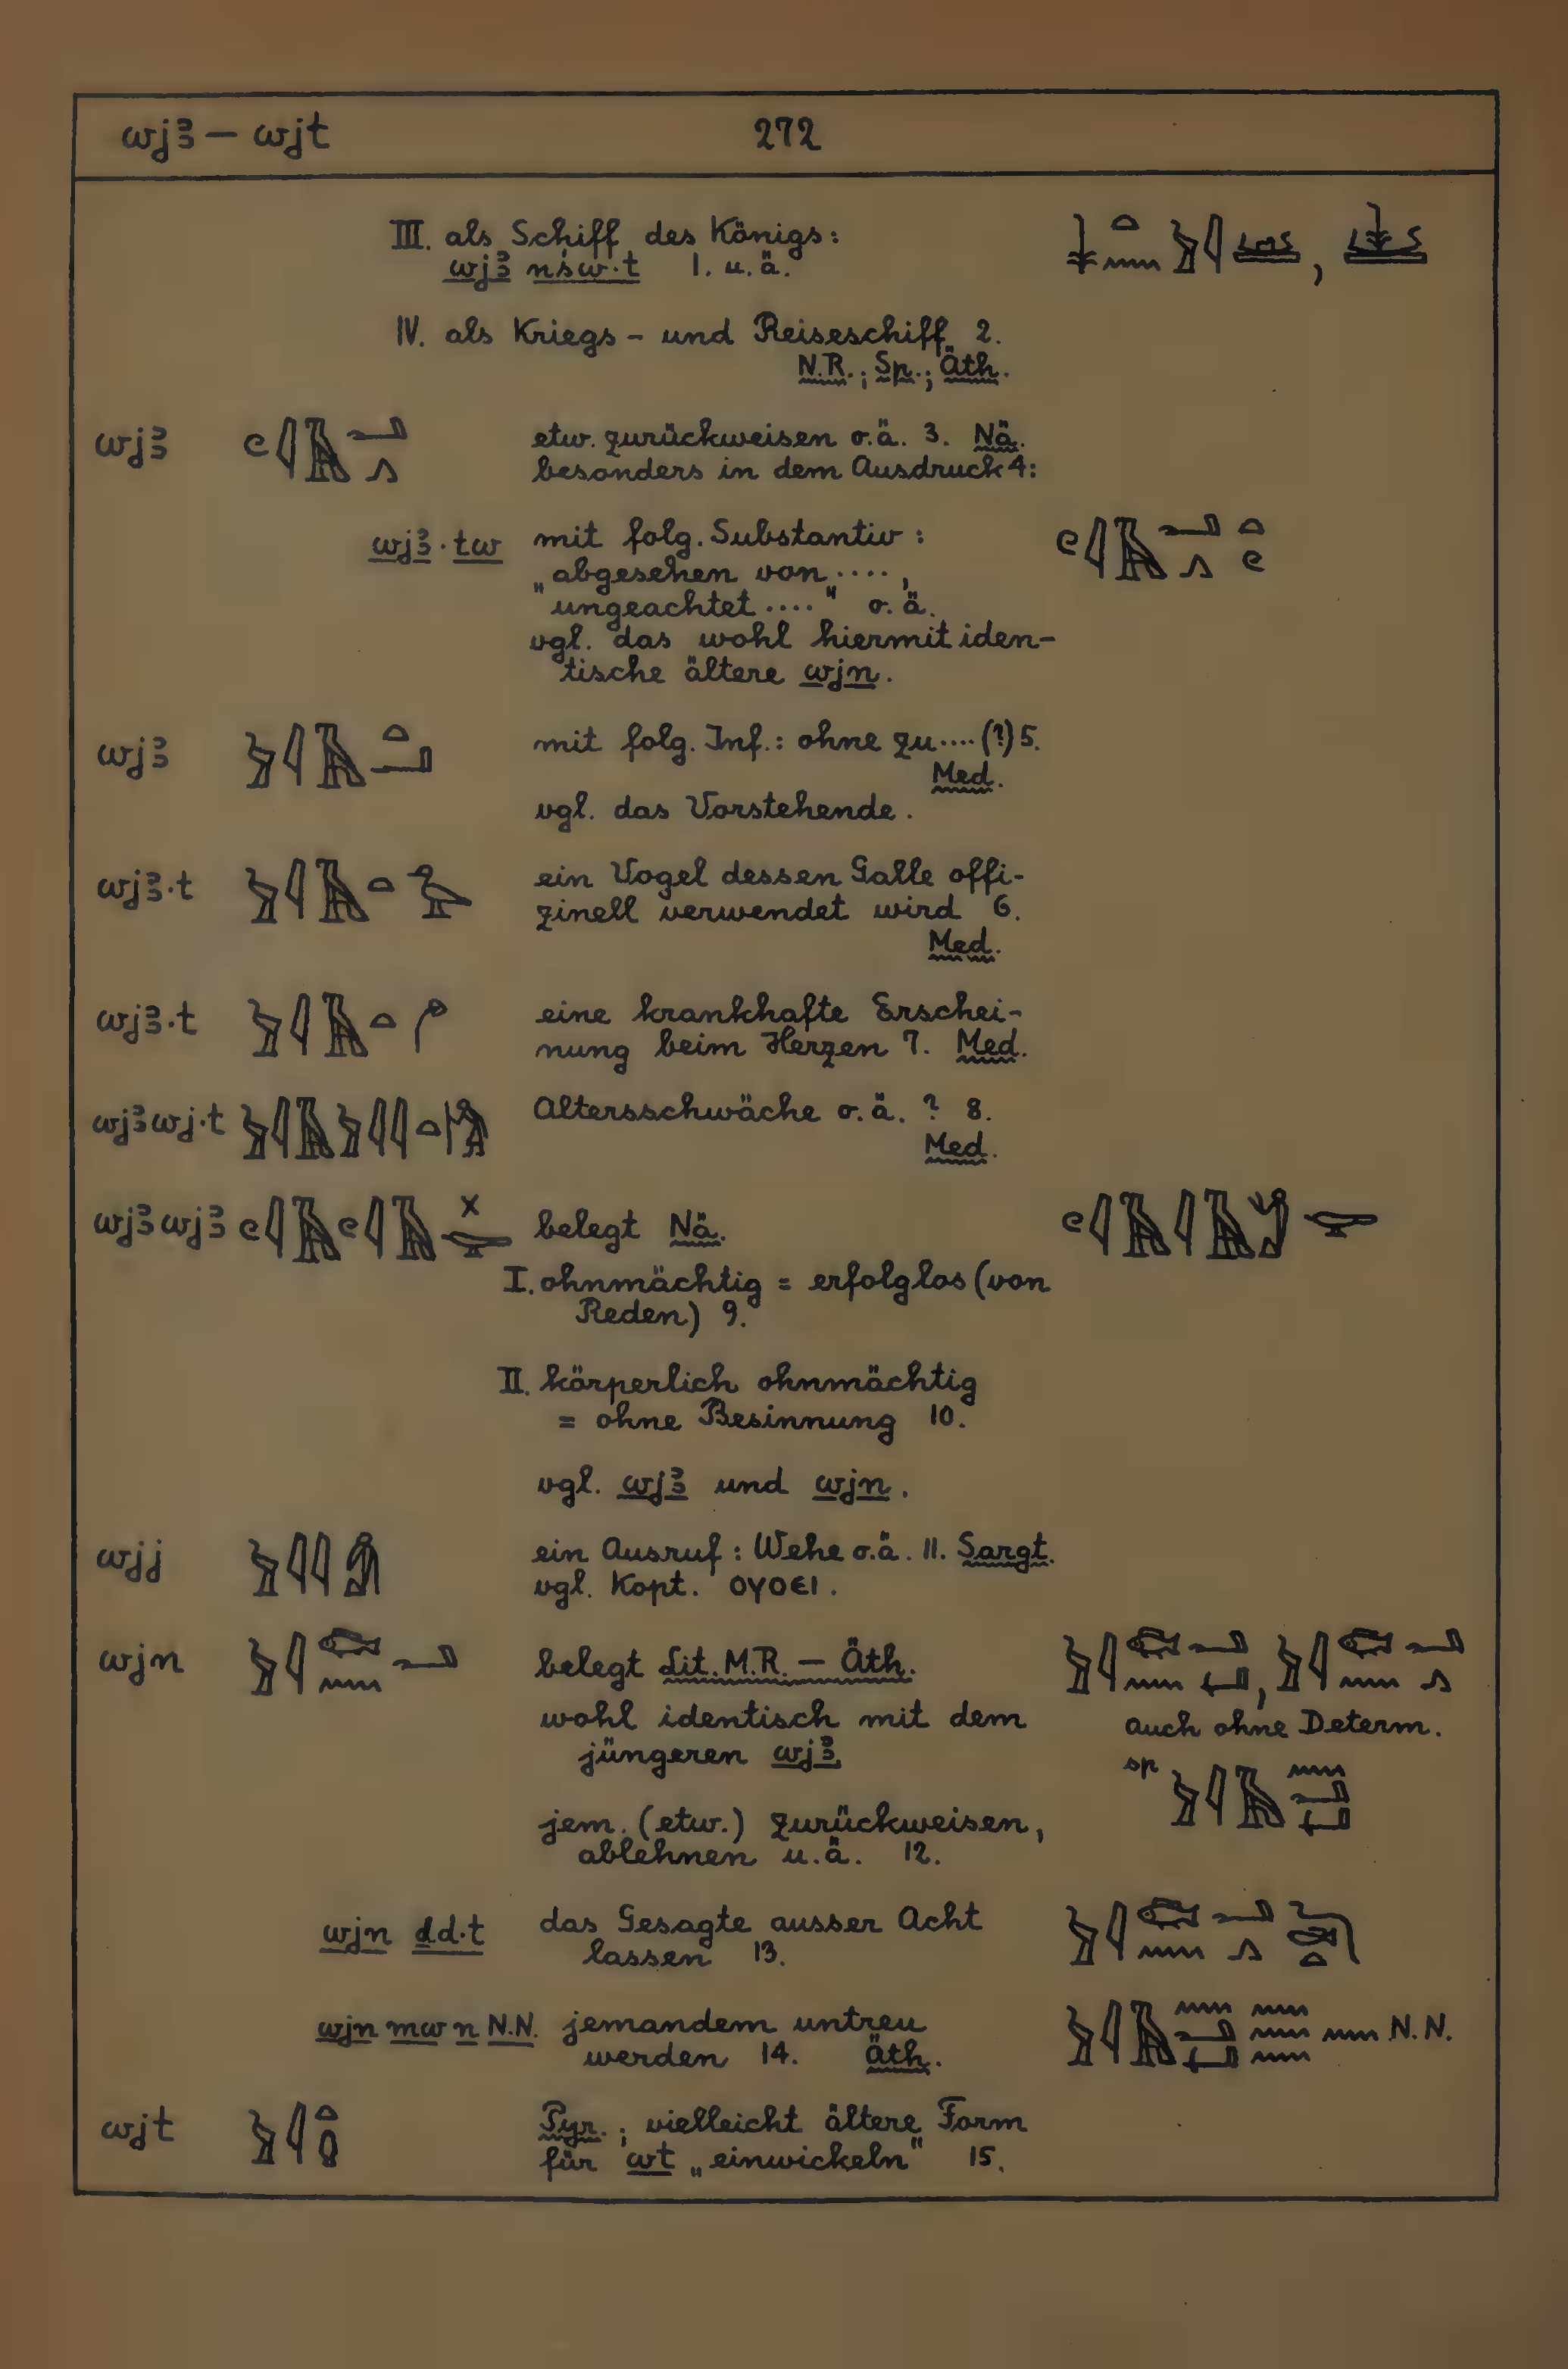 wjꜣ — wjt 272
III. als Schiff des Königs:
wjꜣ nśw·t 1. u. ä.
IV. als Kriegs- und Reiseschiff 2.
N.R.; Sp.; Äth.
wjꜣ etw. zurückweisen o.ä. 3. Nä.
besonders in dem Ausdruck 4:
wjꜣ·tw mit folg. Substantiv:
„abgesehen von ....,
ungeachtet ....“ o. ä.
vgl. das wohl hiermit iden-
tische ältere wjn.
wjꜣ mit folg. Inf.: ohne zu .... (?) 5.
Med.
vgl. das Vorstehende.
wjꜣ·t ein Vogel dessen Galle offi-
zinell verwendet wird 6.
Med.
wjꜣ·t eine krankhafte Erschei-
nung beim Herzen 7. Med.
wjꜣwj·t Altersschwäche o. ä. ? 8.
Med.
wjꜣwjꜣ belegt Nä.
I. ohnmächtig = erfolglos (von
Reden) 9.
II. körperlich ohnmächtig
= ohne Besinnung 10.
vgl. wjꜣ und wjn.
wjj ein Ausruf: Wehe o.ä. 11. Sargt.
vgl. Kopt. ⲟⲩⲟⲉⲓ.
wjn belegt Lit. M.R. — Äth.
wohl identisch mit dem auch ohne Determ.
jüngeren wjꜣ sp
jem. (etw.) zurückweisen,
ablehnen u. ä. 12.
wjn ḏd·t das Gesagte ausser Acht
lassen 13.
wjn mw n N.N. jemandem untreu N.N.
werden 14. Äth.
wjt Pyr.; vielleicht ältere Form
für wt „einwickeln“ 15.